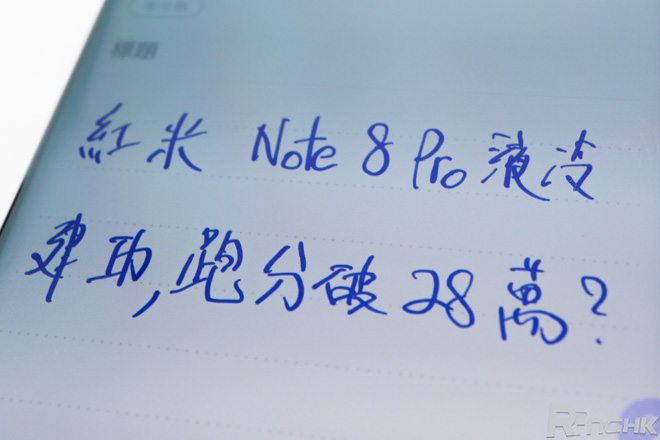 標題
紅米 Note 8 Pro 液冷
建功,跑分破 28 萬?